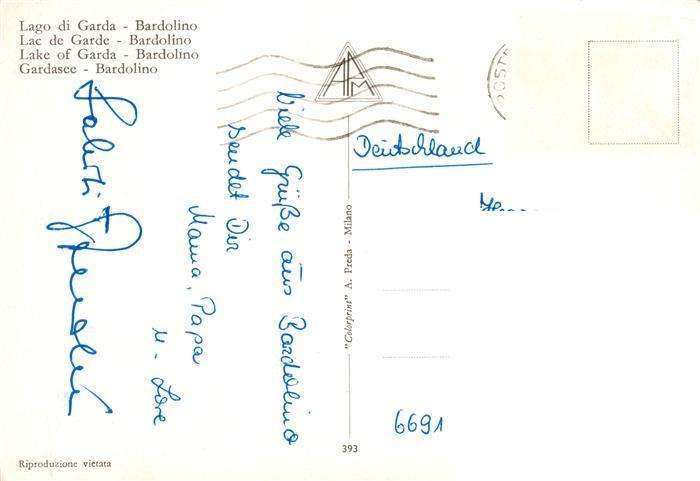 Lago di Garda - Bardolino
Lac de Garde - Bardolino
Lake of Garda - Bardolino
Gardasee - Bardolino
Viele Grüße aus Bardolino
sendet Dir
Mama, Papa
u - Lore
Saluti
Deutschland
6691
"Colorprint" A. Preda - Milano
393
Riproduzione vietata
POSTE